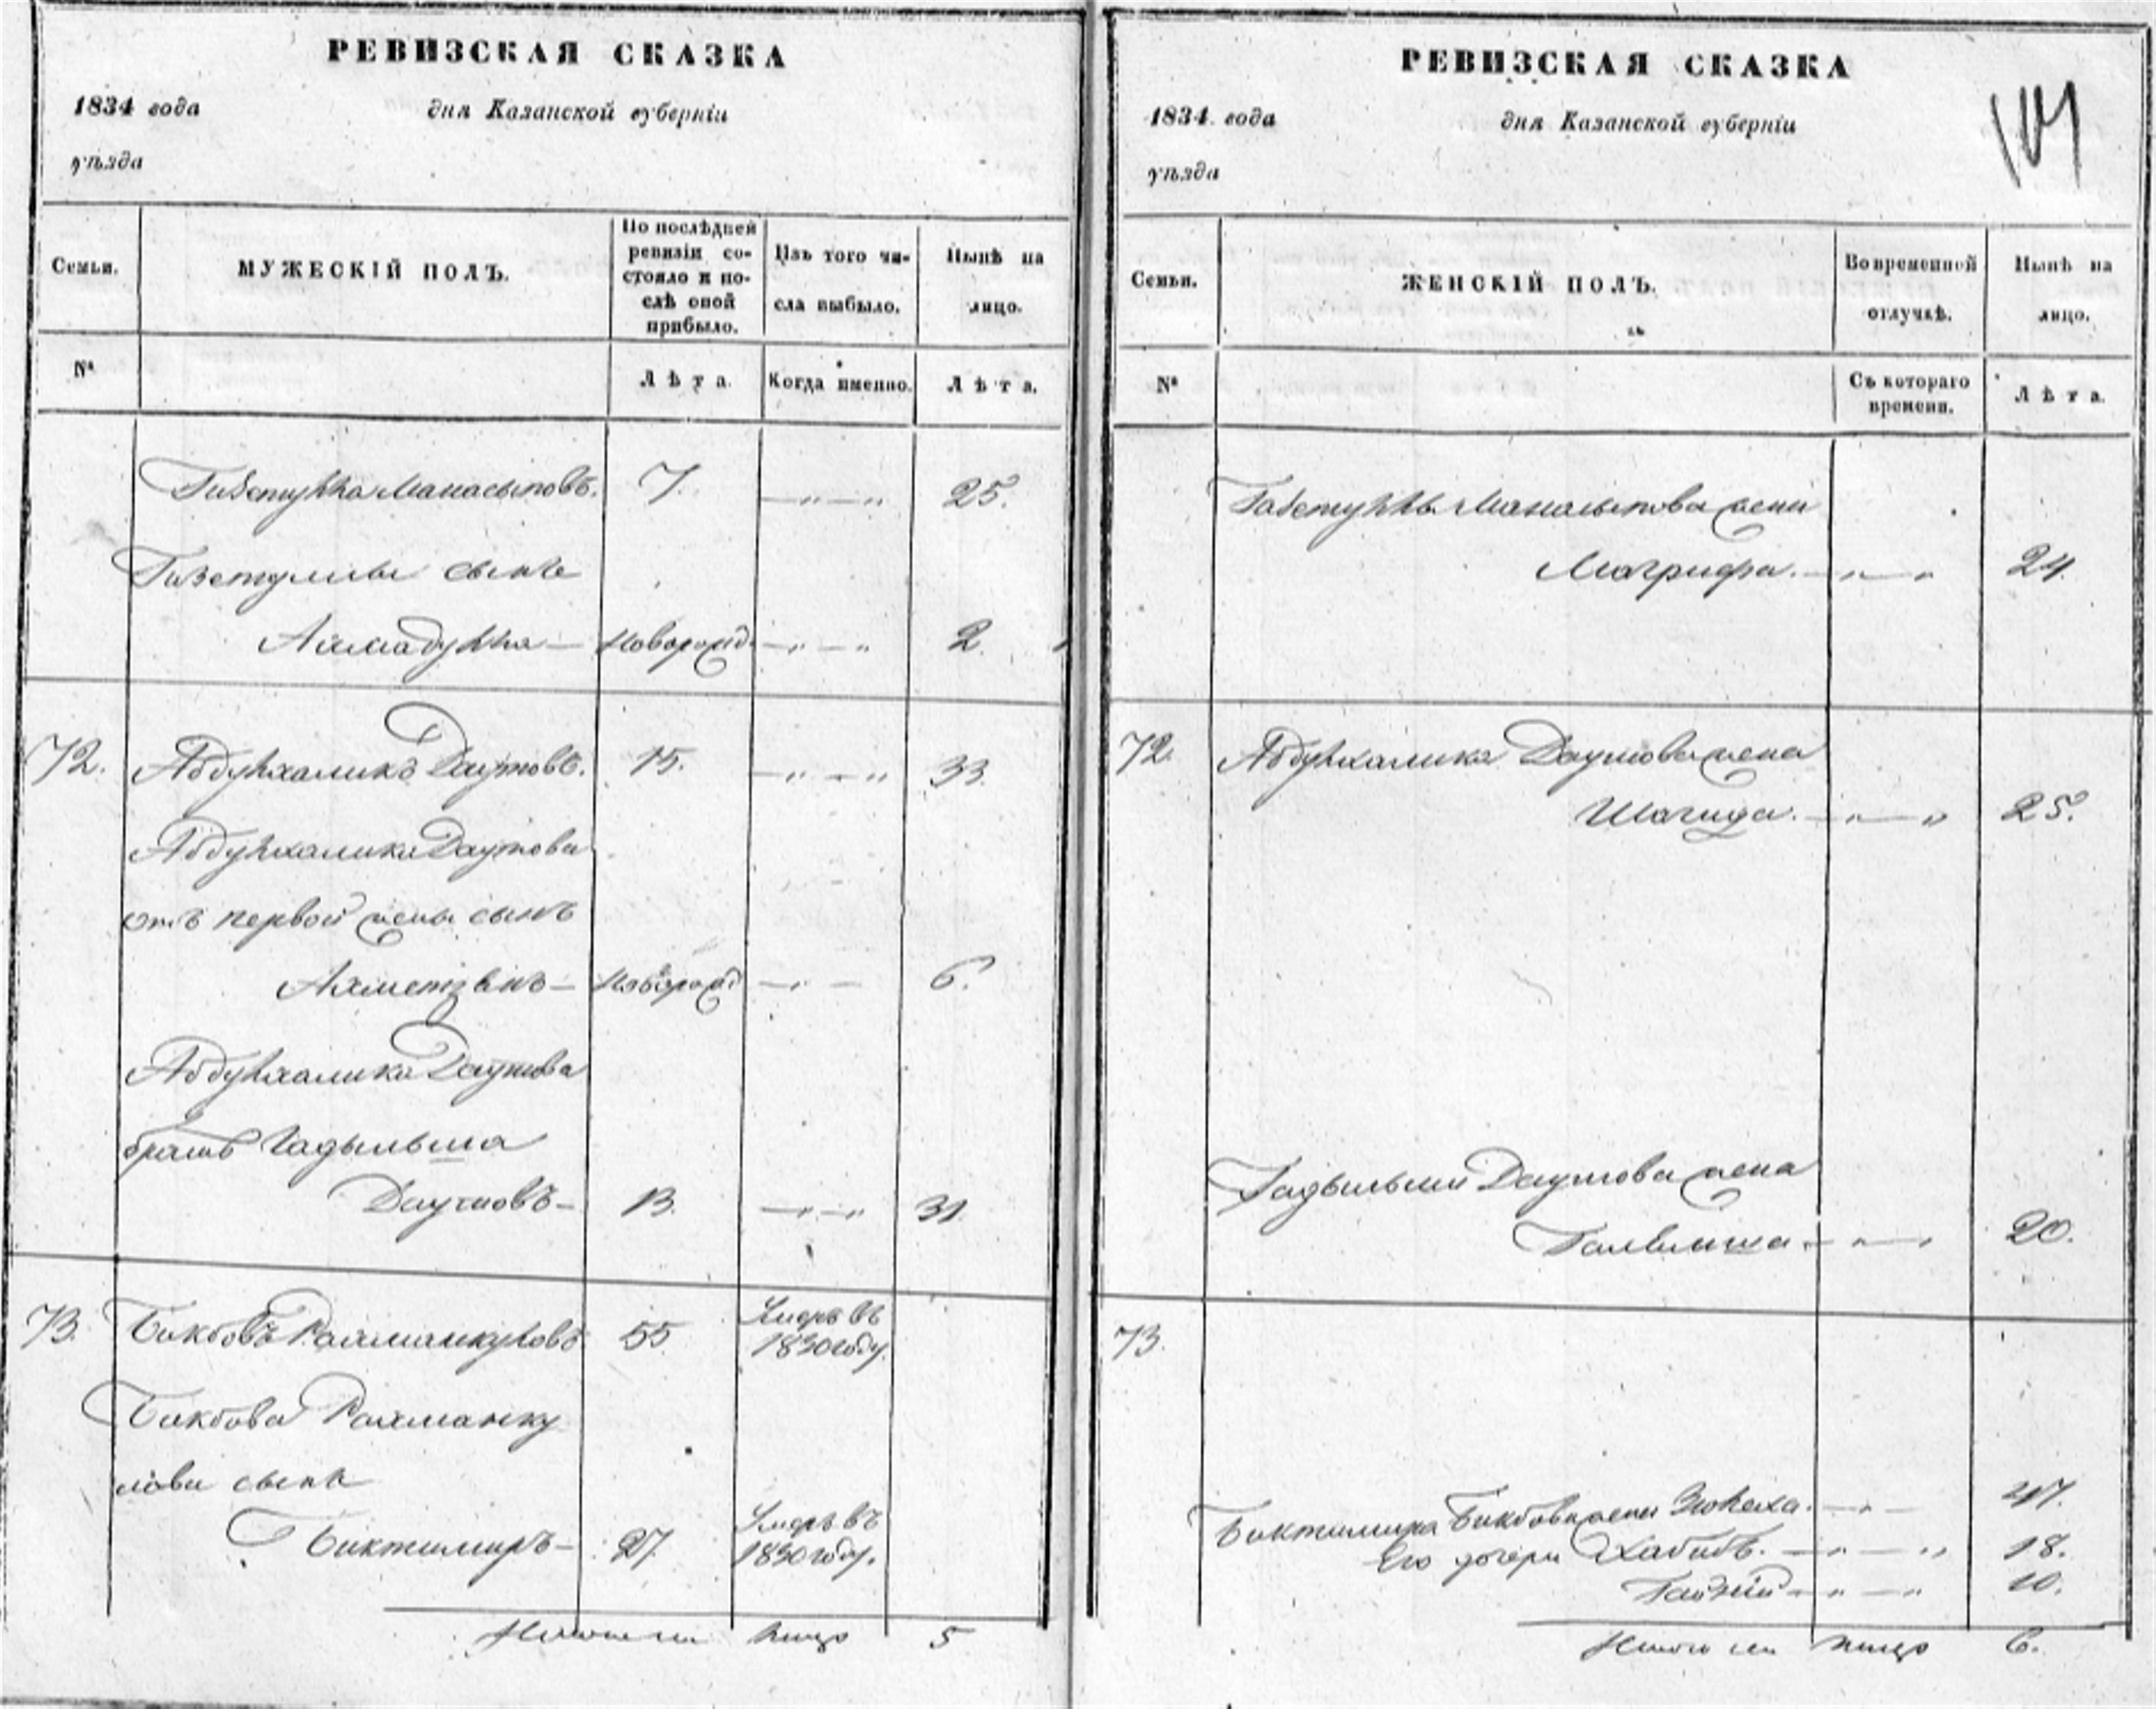 РЕВИЗСКАЯ СКАЗКА
1834 года дня Казанской губерніи
уѣзда
Семьи. МУЖЕСКІЙ ПОЛЪ. По послѣдней ревизіи состояло и послѣ оной прибыло. Изъ того числа выбыло. Нынѣ на лицо.
№ Лѣта. Когда именно. Лѣта.
Манасыповъ. 7. —„—„ 25.
сынъ
Ахмадулла — новорожд. —„—„ 2.
72. Абдулхаликъ Даутовъ. 15. —„—„ 33.
Абдулхалика Даутова
отъ первой жены сынъ
Ахметзянъ — новорожд —„— 6.
Абдулхалика Даутова
братъ Гадыльша
Даутовъ — 13. —„—„ 31.
73. Бикбовъ Рахманкуловъ 55. Умеръ въ
1830 году.
Бикбова Рахманку
лова сынъ
Биктимиръ — 27. Умеръ въ
1830 году.
Итого на лицо 5
РЕВИЗСКАЯ СКАЗКА
1834 года дня Казанской губерніи
уѣзда
Семьи. ЖЕНСКІЙ ПОЛЪ. Во временной отлучкѣ. Нынѣ на лицо.
№ Съ котораго времени. Лѣта.
Манасыпова жена
Магрифа. —„—„ 24.
72. Абдулхалика Даутова жена
Шагида. —„—„ 25.
Гадыльши Даутова жена
—„—„ 20.
73.
Биктимира Бикбова жена —„— 47.
Его дочери —„—„ 18.
—„—„ 10.
Итого на лицо 6.